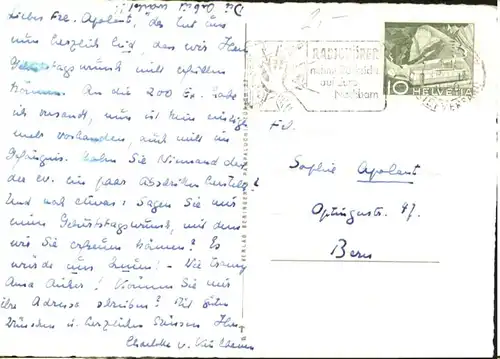 Liebes Frl. Apolant, das tut uns
nun herzlich leid, dass wir Ihren
Geburtstagswunsch nicht erfüllen
können. An die 200 Ex. habe
ich versandt, nun ist kein einziges
mehr vorhanden, auch nicht im
Gefängnis. Haben Sie Niemand der
der ev. ein paar Abschriften herstellt?
Und noch etwas: Sagen Sie uns
einen Geburtstagswunsch, mit dem
wir Sie erfreuen können? Es
würde uns freuen! - Wie traurig
Anna! Können Sie mir
ihre Adresse schreiben? Mit guten
Wünschen u. herzlichen Grüssen Ihre
Charlotte v.
2.-
RADIOHÖRER
nimm Rücksicht
auf Deine
Nachbarn
10 HELVETIA
Frl.
Sophie Apolant
Optingerstr. 47.
Bern